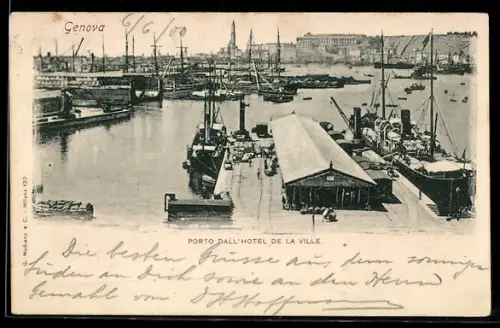 Genova
6/6/00
PORTO DALL'HOTEL DE LA VILLE.
G. Modiano e C. - Milano 120
Die besten Grüsse aus dem sonnigen
Süden an Dich sowie an den Herrn
Gemahl von Hoffmann